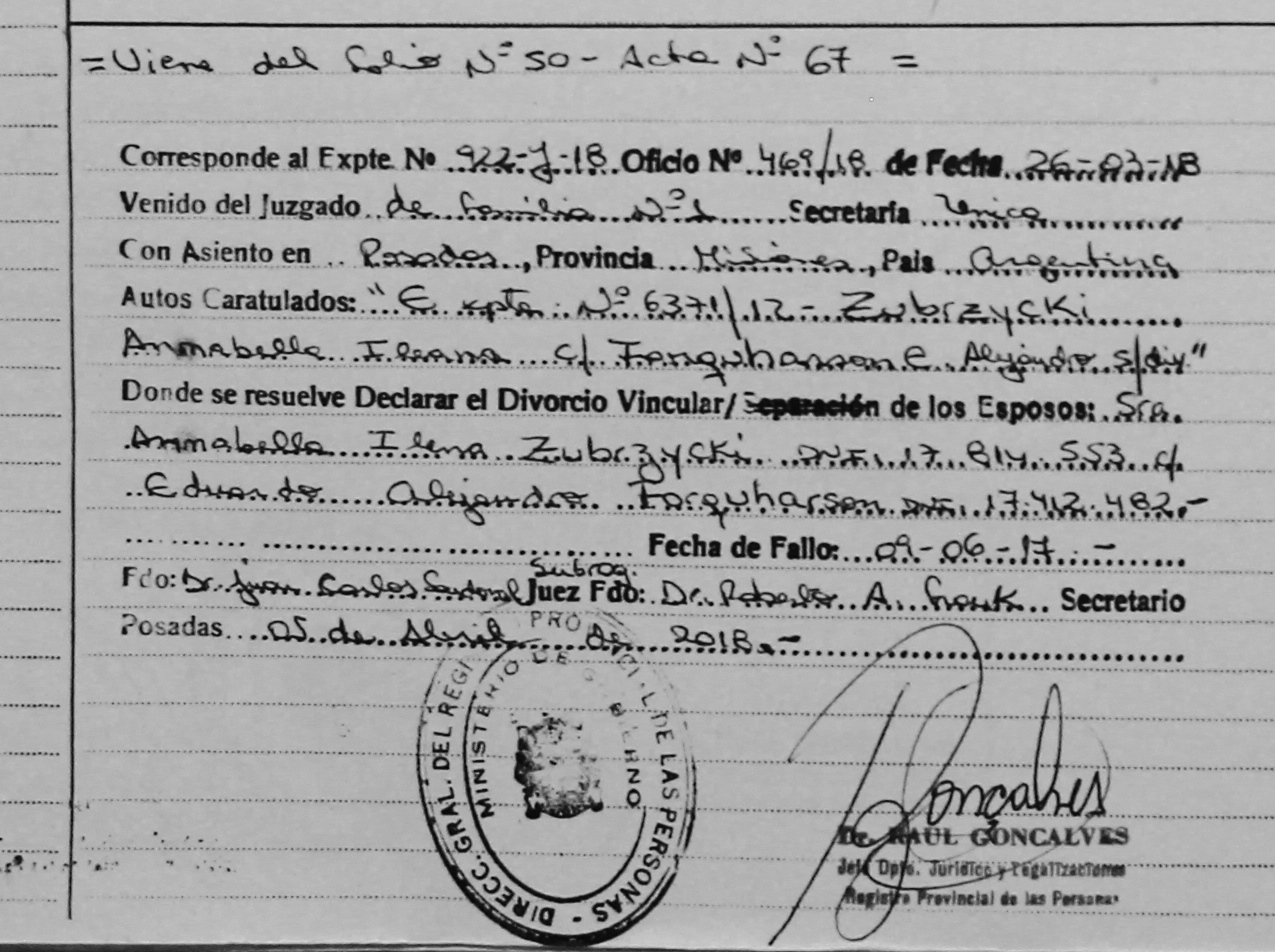 = Viene del Folio Nº 50 - Acta Nº 67 =
Corresponde al Expte. Nº 922-J-18 Oficio Nº 469/18 de Fecha 26-03-18
Venido del Juzgado de Familia Nº 1 Secretaría Unica
Con Asiento en Posadas, Provincia Misiones, Pais Argentina
Autos Caratulados: "Expte. Nº 6371/12 - Zubrzycki
Annabella Ileana c/ Farquharson E. Alejandro s/div"
Donde se resuelve Declarar el Divorcio Vincular/ Separación de los Esposos: Sra.
Annabella Ilena Zubrzycki DNI. 17.814.553 c/
Eduardo Alejandro Farquharson DNI. 17.412.482.-
Fecha de Fallo: 09-06-17.-
Subrog.
Fdo: Dr. Juan Carlos Sandoval Juez Fdo: Dr. Roberto A. Secretario
Posadas 05 de Abril de 2018.-
DIRECC. GRAL. DEL REGI PRO CI L DE LAS PERSONAS -
MINISTERIO DE G BIERNO
Goncalves
Dr. RAUL GONCALVES
Jefe Dpto. Jurídico y Legalizaciones
Registro Provincial de las Personas